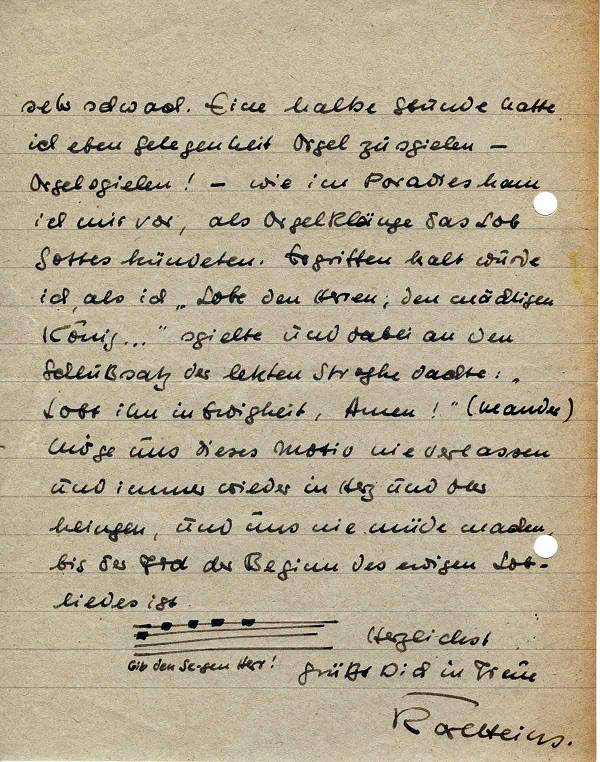 sehr schwach. Eine halbe Stunde hatte
ich eben Gelegenheit Orgel zu spielen –
Orgelspielen! – wie im Paradies kam
ich mir vor, als Orgelklänge das Lob
Gottes kündeten. Ergriffen halt wurde
ich, als ich „Lobe den Herren, den mächtigen
König..." spielte und dabei an den
Schlußsatz der letzten Strophe dachte: „
Lobt ihn in Ewigheit, Amen!" (Neander)
Möge uns dieses Motiv nie verlassen
und immer wieder in Herz und Ohr
klingen, und uns nie müde machen,
bis der Tod der Beginn des ewigen Lob-
liedes ist
Gib den Se-gen Herr!
Herzlichst
grüßt Dich in Treue
Karlheinz.